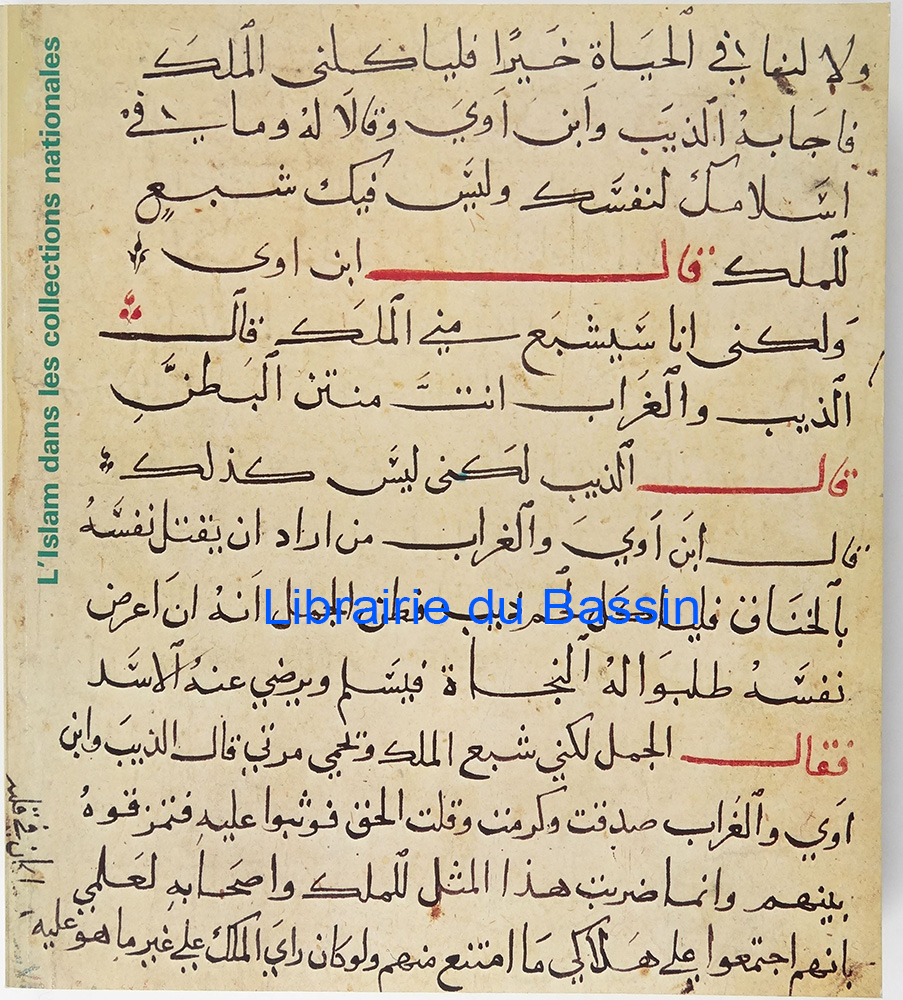 L'Islam dans les collections nationales
ولا لنا في الحياة خيرا فلياكلنى الملك
فاجابه الذيب وابن اوي وقالا له وما في
اسلامك لنفسك وليس فيك شبع
للملك قال ابن اوى
ولكنى انا سيشبع مني الملك قال
الذيب والغراب انت منتن البطن
قال الذيب لكنى ليس كذلك
قال ابن اوي والغراب من اراد ان يقتل نفسه
بالخناق فلياكل لحم ذيب فظن الجمل انه ان اعرض
نفسه طلبوا له النجاة فيسلم ويرضي عنه الاسد
فقال الجمل لكني شبع الملك ولحمي مري قال الذيب وابن
اوي والغراب صدقت وكرمت وقلت الحق فوثبوا عليه فتمزقوه
بينهم وانما ضربت هذا المثل للملك واصحابه لعلمي
بانهم اجتمعوا علي هلاكي ما امتنع منهم ولو كان راي الملك علي غير ما هو عليه
Librairie du Bassin